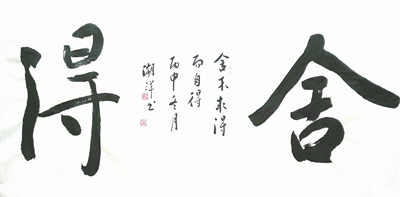 舍
舍不求得
而自得
丙申冬月
洋书
得